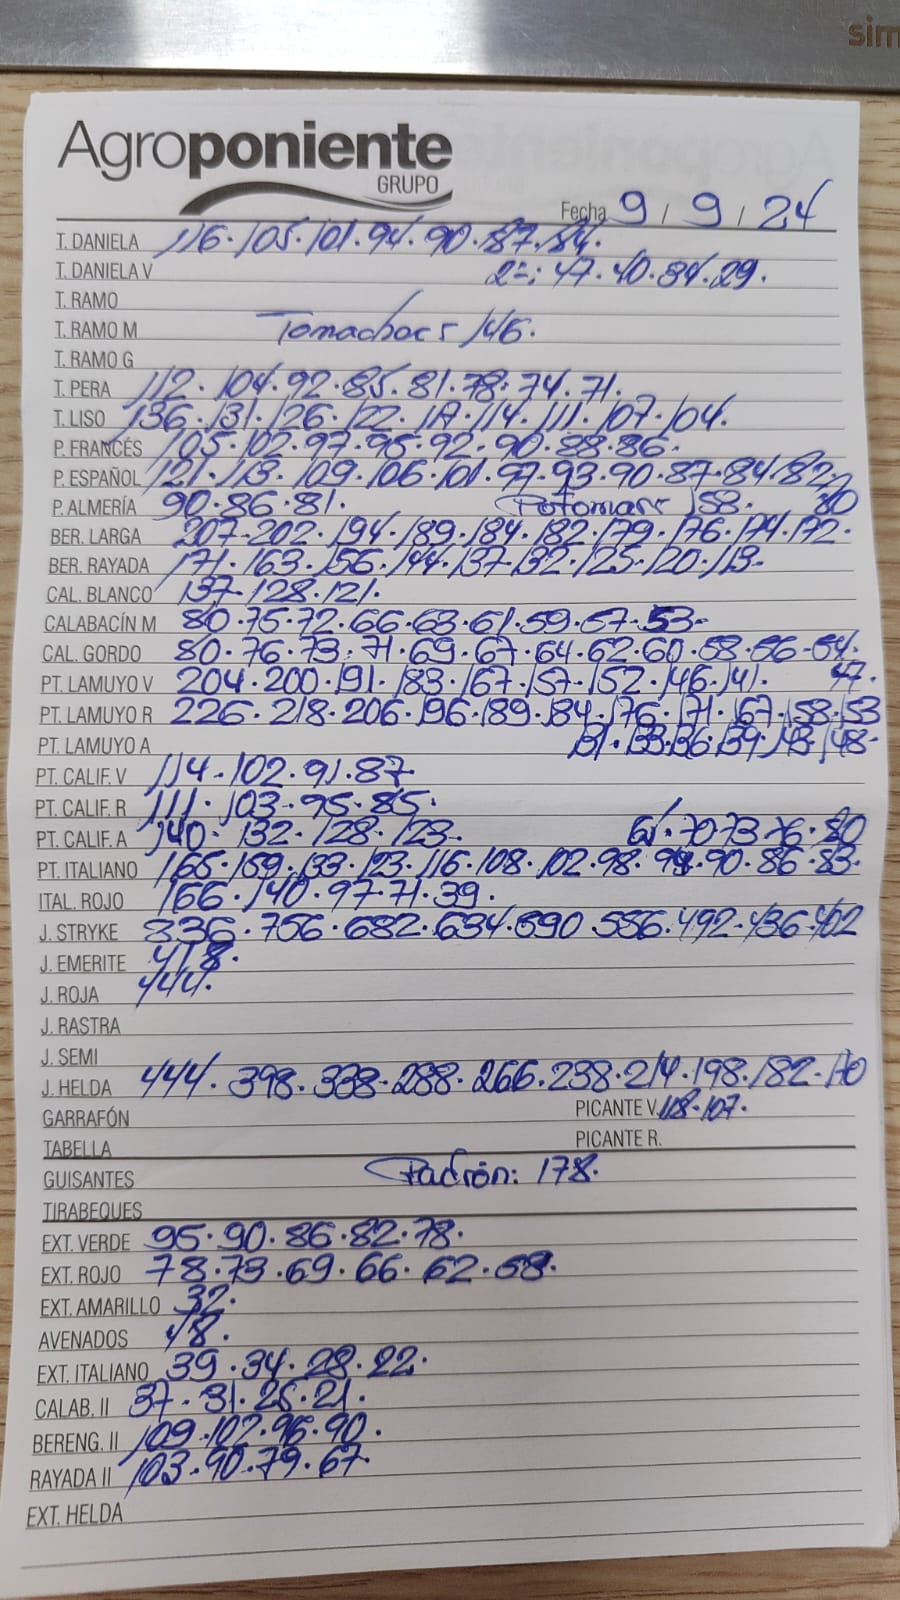 sim
Agroponiente
GRUPO
Fecha 9 / 9 / 24
T. DANIELA 116·105·101·94·90·87·84·
T. DANIELA V 2ª: 47·40·34·29·
T. RAMO
T. RAMO M Tomachoc 146·
T. RAMO G
T. PERA 112·104·92·85·81·78·74·71·
T. LISO 136·131·126·122·117·114·111·107·104·
P. FRANCÉS 105·102·97·95·92·90·88·86·
P. ESPAÑOL 121·113·109·106·101·97·93·90·87·84·82·
P. ALMERÍA 90·86·81· 158· 80
BER. LARGA 207·202·194·189·184·182·179·176·174·172·
BER. RAYADA 171·163·156·144·137·132·125·120·113·
CAL. BLANCO 137·128·121·
CALABACÍN M 80·75·72·66·63·61·59·57·53·
CAL. GORDO 80·76·73·71·69·67·64·62·60·58·56·54·
PT. LAMUYO V 204·200·191·183·167·157·152·146·141· 47·
PT. LAMUYO R 226·218·206·196·189·184·176·171·167·158·153
PT. LAMUYO A 131·133·136·139·143·148·
PT. CALIF. V 114·102·91·87·
PT. CALIF. R 111·103·95·85·
PT. CALIF. A 140·132·128·123· 70·73·76·80
PT. ITALIANO 165·159·133·123·116·108·102·98·94·90·86·83·
ITAL. ROJO 166·140·97·71·39·
J. STRYKE 836·756·682·634·590·556·492·436·402
J. EMERITE 418·
J. ROJA 444·
J. RASTRA
J. SEMI
J. HELDA 444·398·338·288·266·238·214·198·182·170
GARRAFÓN PICANTE V. 118·107·
TABELLA PICANTE R.
GUISANTES Padrón: 178·
TIRABEQUES
EXT. VERDE 95·90·86·82·78·
EXT. ROJO 78·73·69·66·62·58·
EXT. AMARILLO 32·
AVENADOS 18·
EXT. ITALIANO 39·34·28·22·
CALAB. II 37·31·25·21·
BERENG. II 109·102·96·90·
RAYADA II 103·90·79·67·
EXT. HELDA